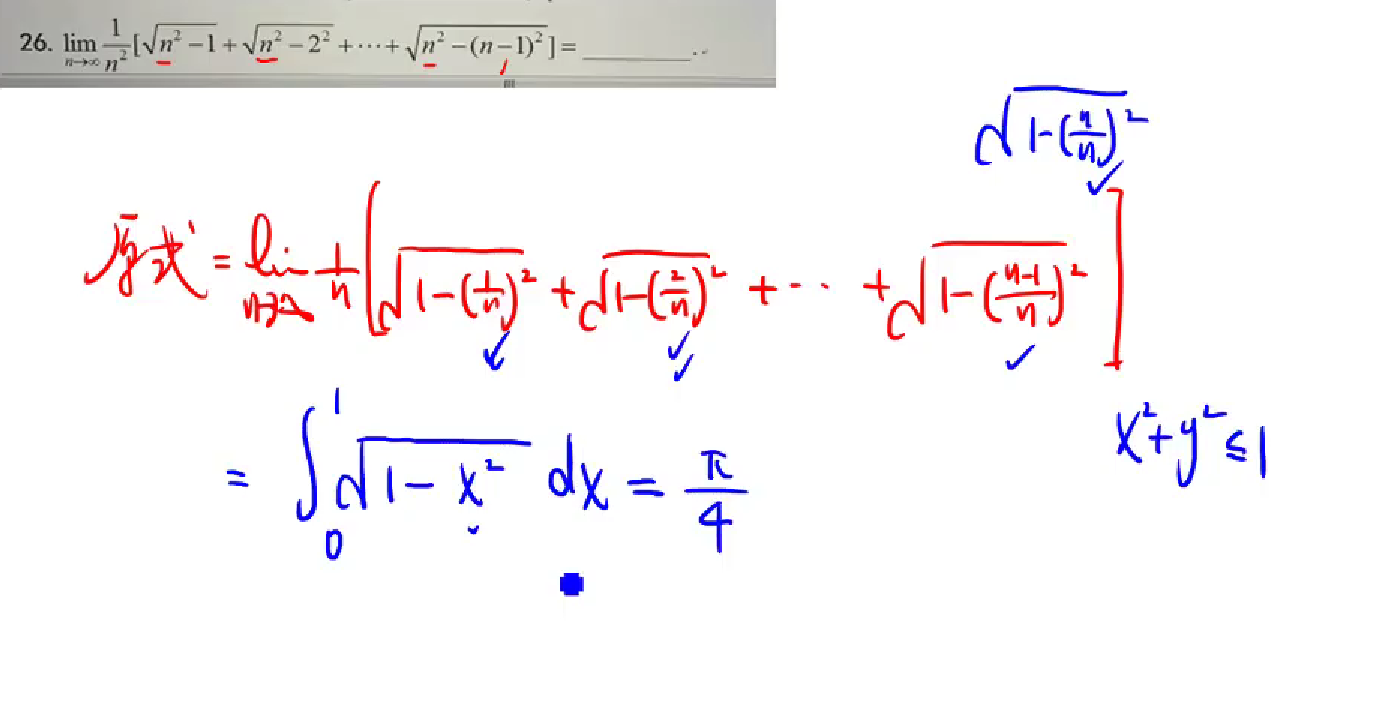 26. lim_{n→∞} 1/n² [√(n²−1) + √(n²−2²) + ⋯ + √(n²−(n−1)²)] = ________.
√(1−(n/n)²)
原式 = lim_{n→∞} 1/n [√(1−(1/n)²) + √(1−(2/n)²) + ⋯ + √(1−((n−1)/n)²)]
x²+y² ≤ 1
= ∫₀¹ √(1−x²) dx = π/4